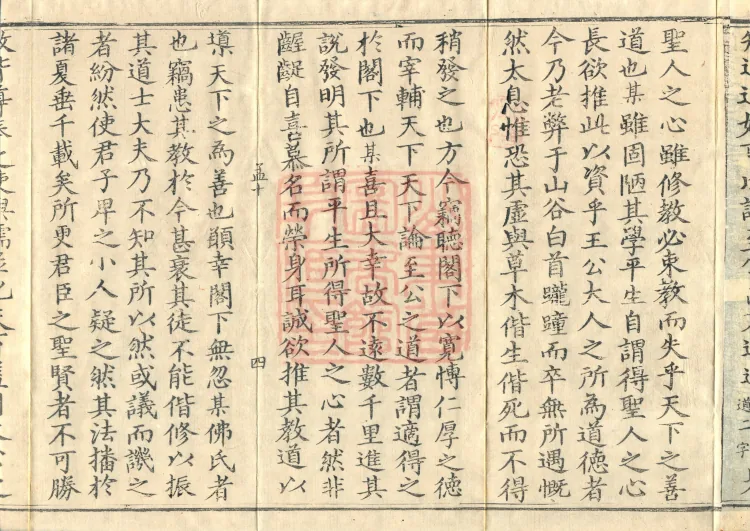 聖人之心雖修教必束教而失乎天下之善
道也某雖固陋其學平生自謂得聖人之心
長欲推此以資乎王公大人之所為道德者
今乃老弊于山谷白首躘蹱而卒無所遇慨
然太息惟恐其虛與草木偕生偕死而不得
稍發之也方今竊聽閣下以寬愽仁厚之德
而宰輔天下天下論至公之道者謂適得之
於閣下也某喜且大幸故不遠數千里進其
說發明其所謂平生所得聖人之心者然非
齷齪自喜慕名而榮身耳誠欲推其教道以
孟十 四
天下之為善也願幸閣下無忽某佛氏者
也竊患其教於今甚衰其徒不能偕修以振
其道士大夫乃不知其所以然或議而譏之
者紛然使君子卑之小人疑之然其法播於
諸夏垂千載矣所更君臣之聖賢者不可勝